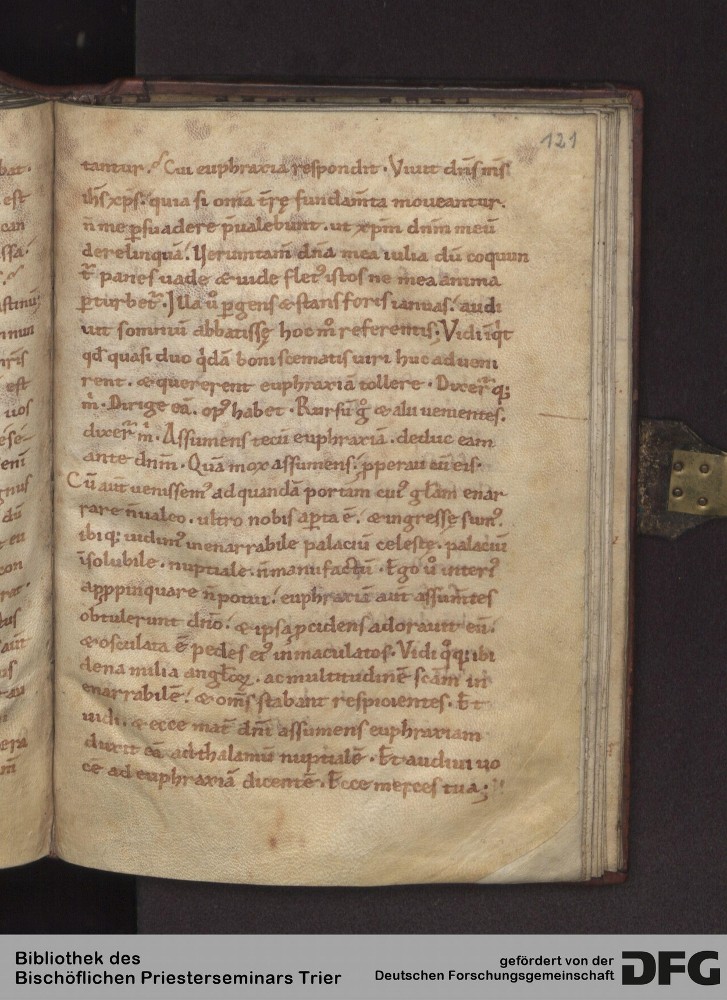 121
tantur. Cui euphraxia respondit. Viuit dn̄s m̄s
ih̄s xp̄s. quia si om̄a t̄rę fundam̄ta moueantur.
n̄ me p̱suadere p̄ualebunt. ut xp̄m dn̄m meū
derelinquā. Veruntam̄ dn̄a mea iulia dū coquun
t̄ panes uade & uide flet᷒ istos ne mea anima
p̱turbet᷑. Illa u̇ p̱gens & stans foris ianuas. audi
uit somniū abbatissę hoc m̊ referentis. Vidi
qd̄ quasi duo q̇dā boni scematis uiri huc adueni
rent. & quererent euphraxiā tollere. Dixer̄ q;
m̄. Dirige eā. op᷒ habet. Rursū g̊ & alii uenientes.
dixer̄ m̄. Assumens tecū euphraxiā. deduc eam
ante dn̄m. Quā mox assumens. p̱peraui cū eis.
Cū aut̄ uenissem᷒ ad quandā portam cui᷒ gl̄am enar
rare n̄ ualeo. ultro nobis ap̱ta ē. & ingressę sum᷒.
ibi q; uidim᷒ inenarrabile palaciū celeste. palaciū
īsolubile. nuptiale. n̄ manufactū. Ego u̇ interi᷒
appp̱inquare n̄ potui. euphraxiā aut̄ assum̄tes
obtulerunt dn̄o. & ipsa p̱cidens adorauit eū.
& osculata ē pedes ei᷒ inmaculatos. Vidi
dena milia angl̄oꝝ. ac multitudinē scām in
enarrabilē. & om̄s stabant respicientes. Et
uidi. & ecce mat̄ dn̄i assumens euphraxiam
duxit eā ad thalamū nuptialē. Et audiui uo
cē ad euphraxiā dicentē. Ecce merces tua;
Bibliothek des
Bischöflichen Priesterseminars Trier
gefördert von der
Deutschen Forschungsgemeinschaft
DFG